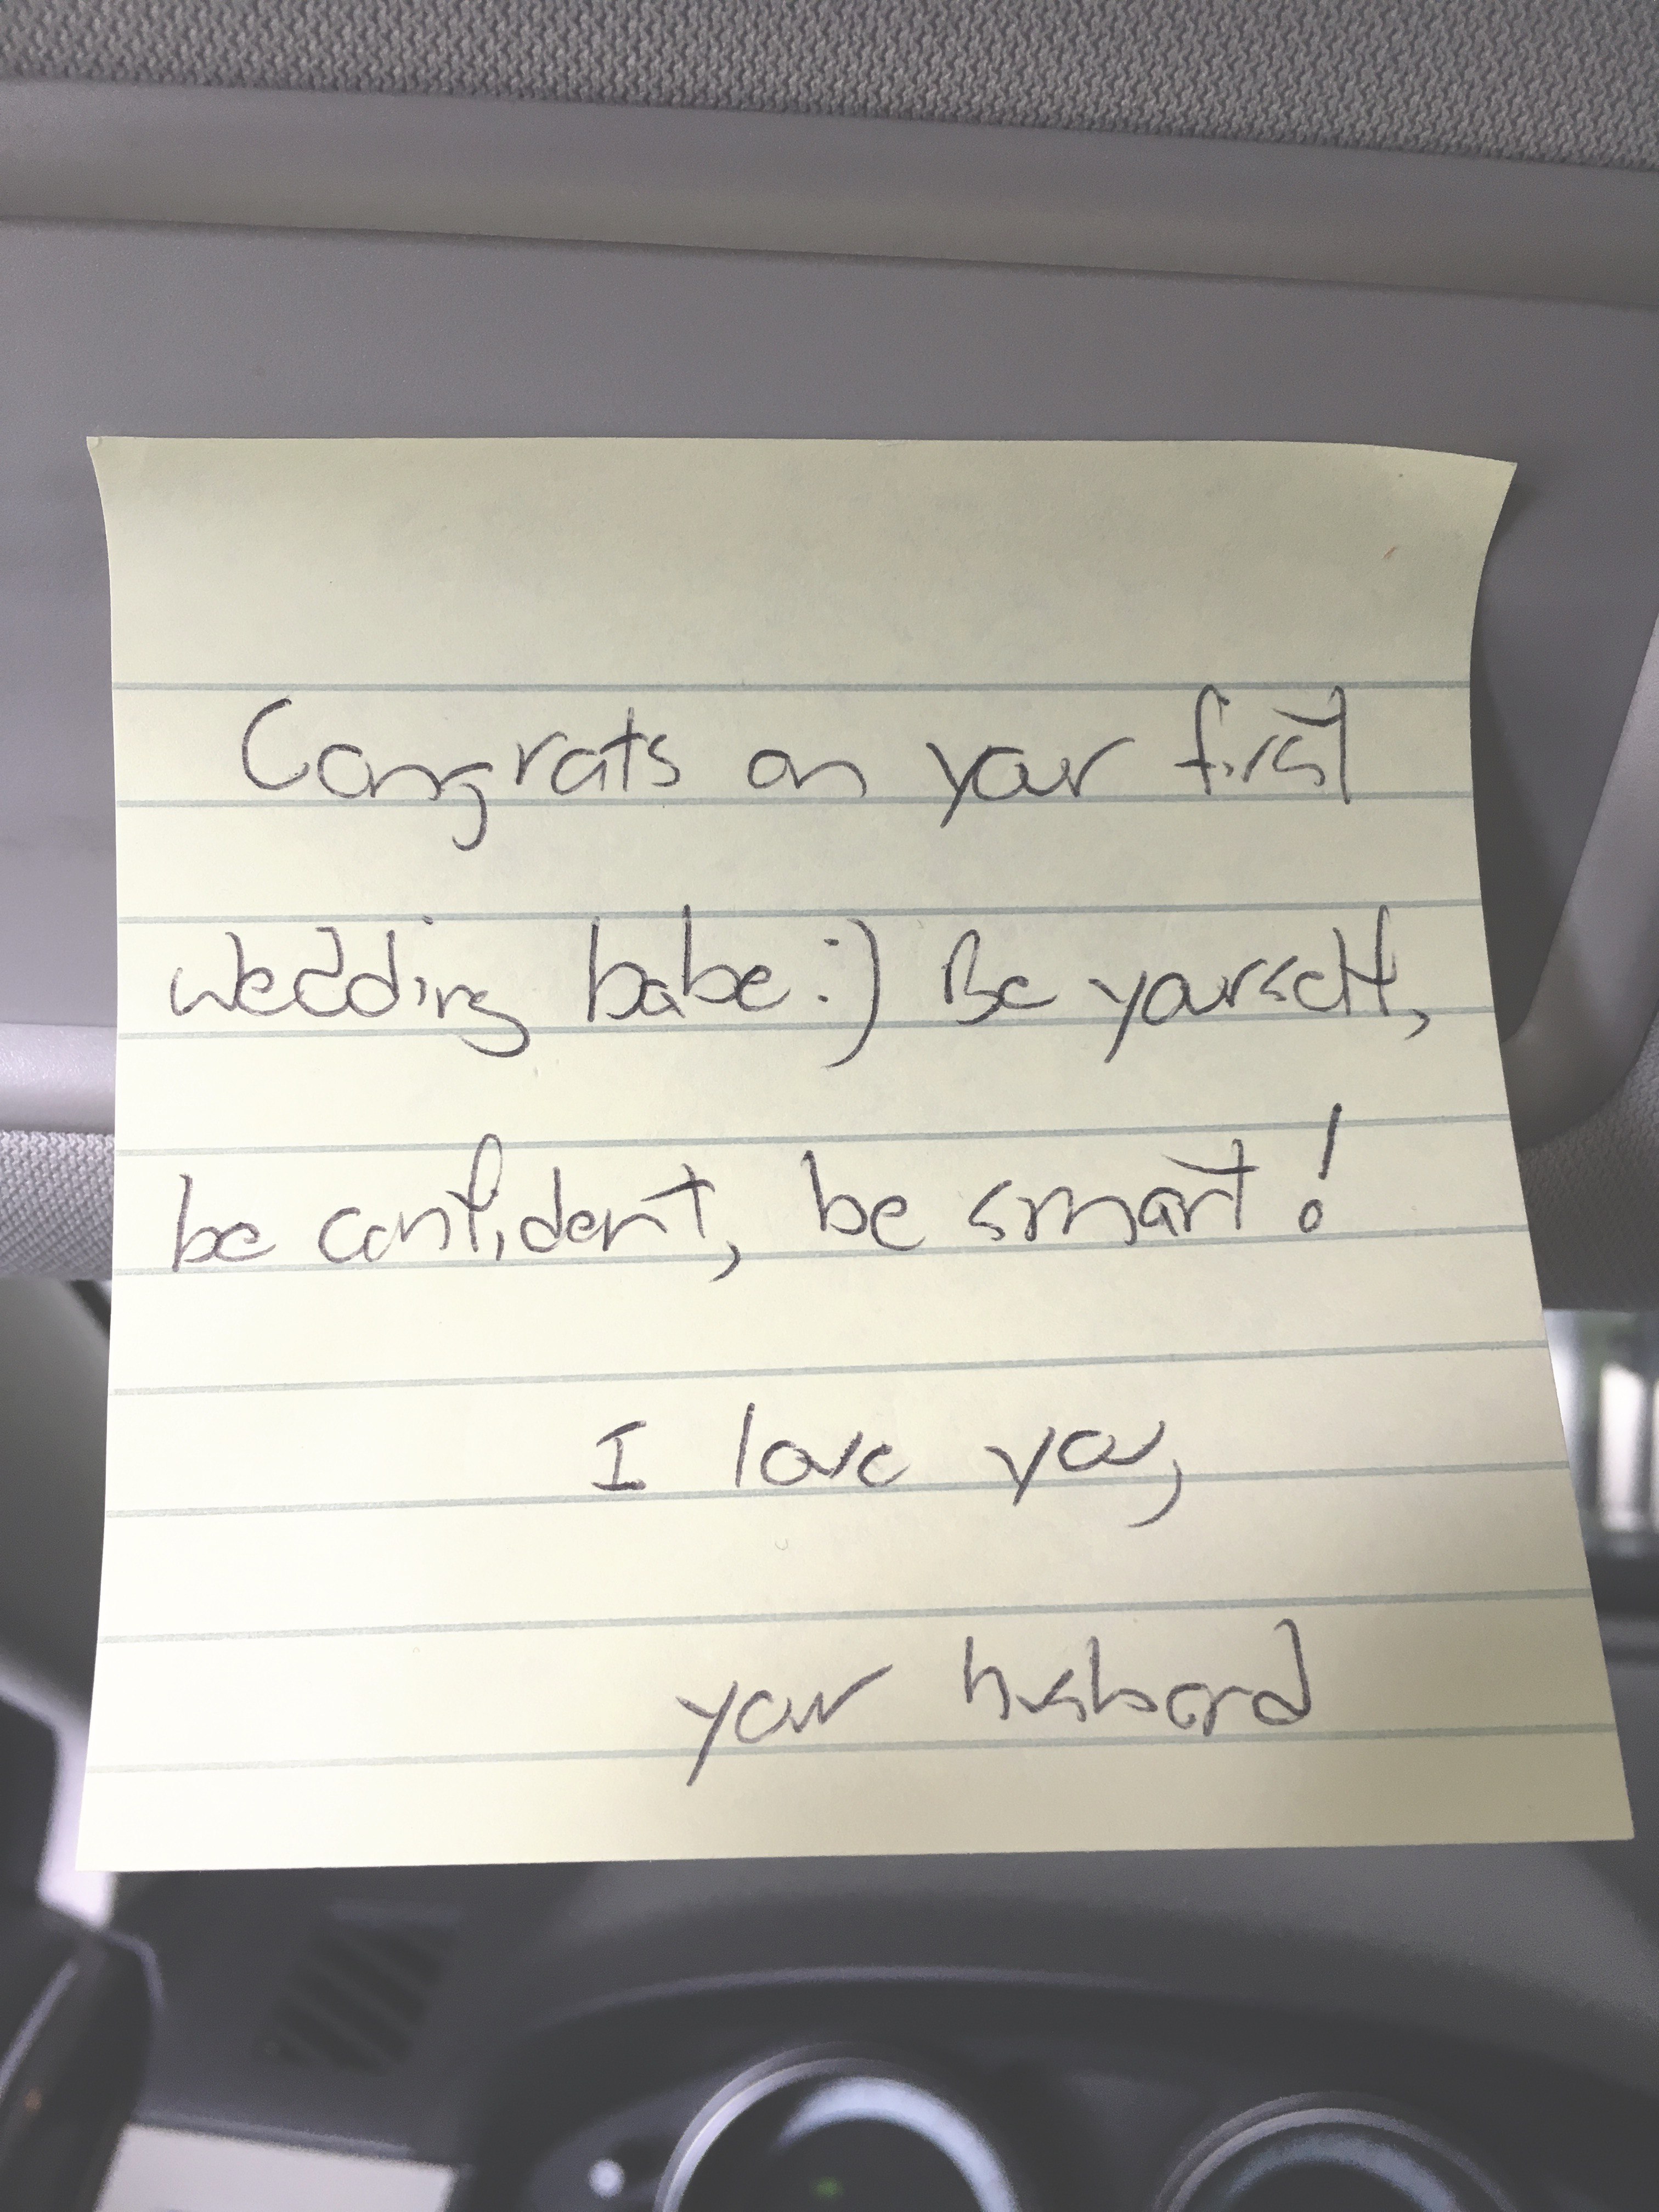 Congrats on your first
wedding babe :) Be yourself,
be confident, be smart!
I love you,
your husband